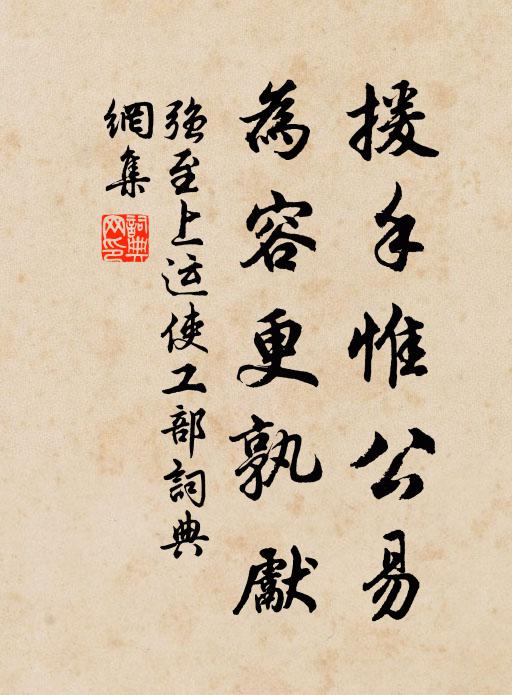 援手惟公易
為容更孰獻
強至上运使工部詞典
網集
詞典网印